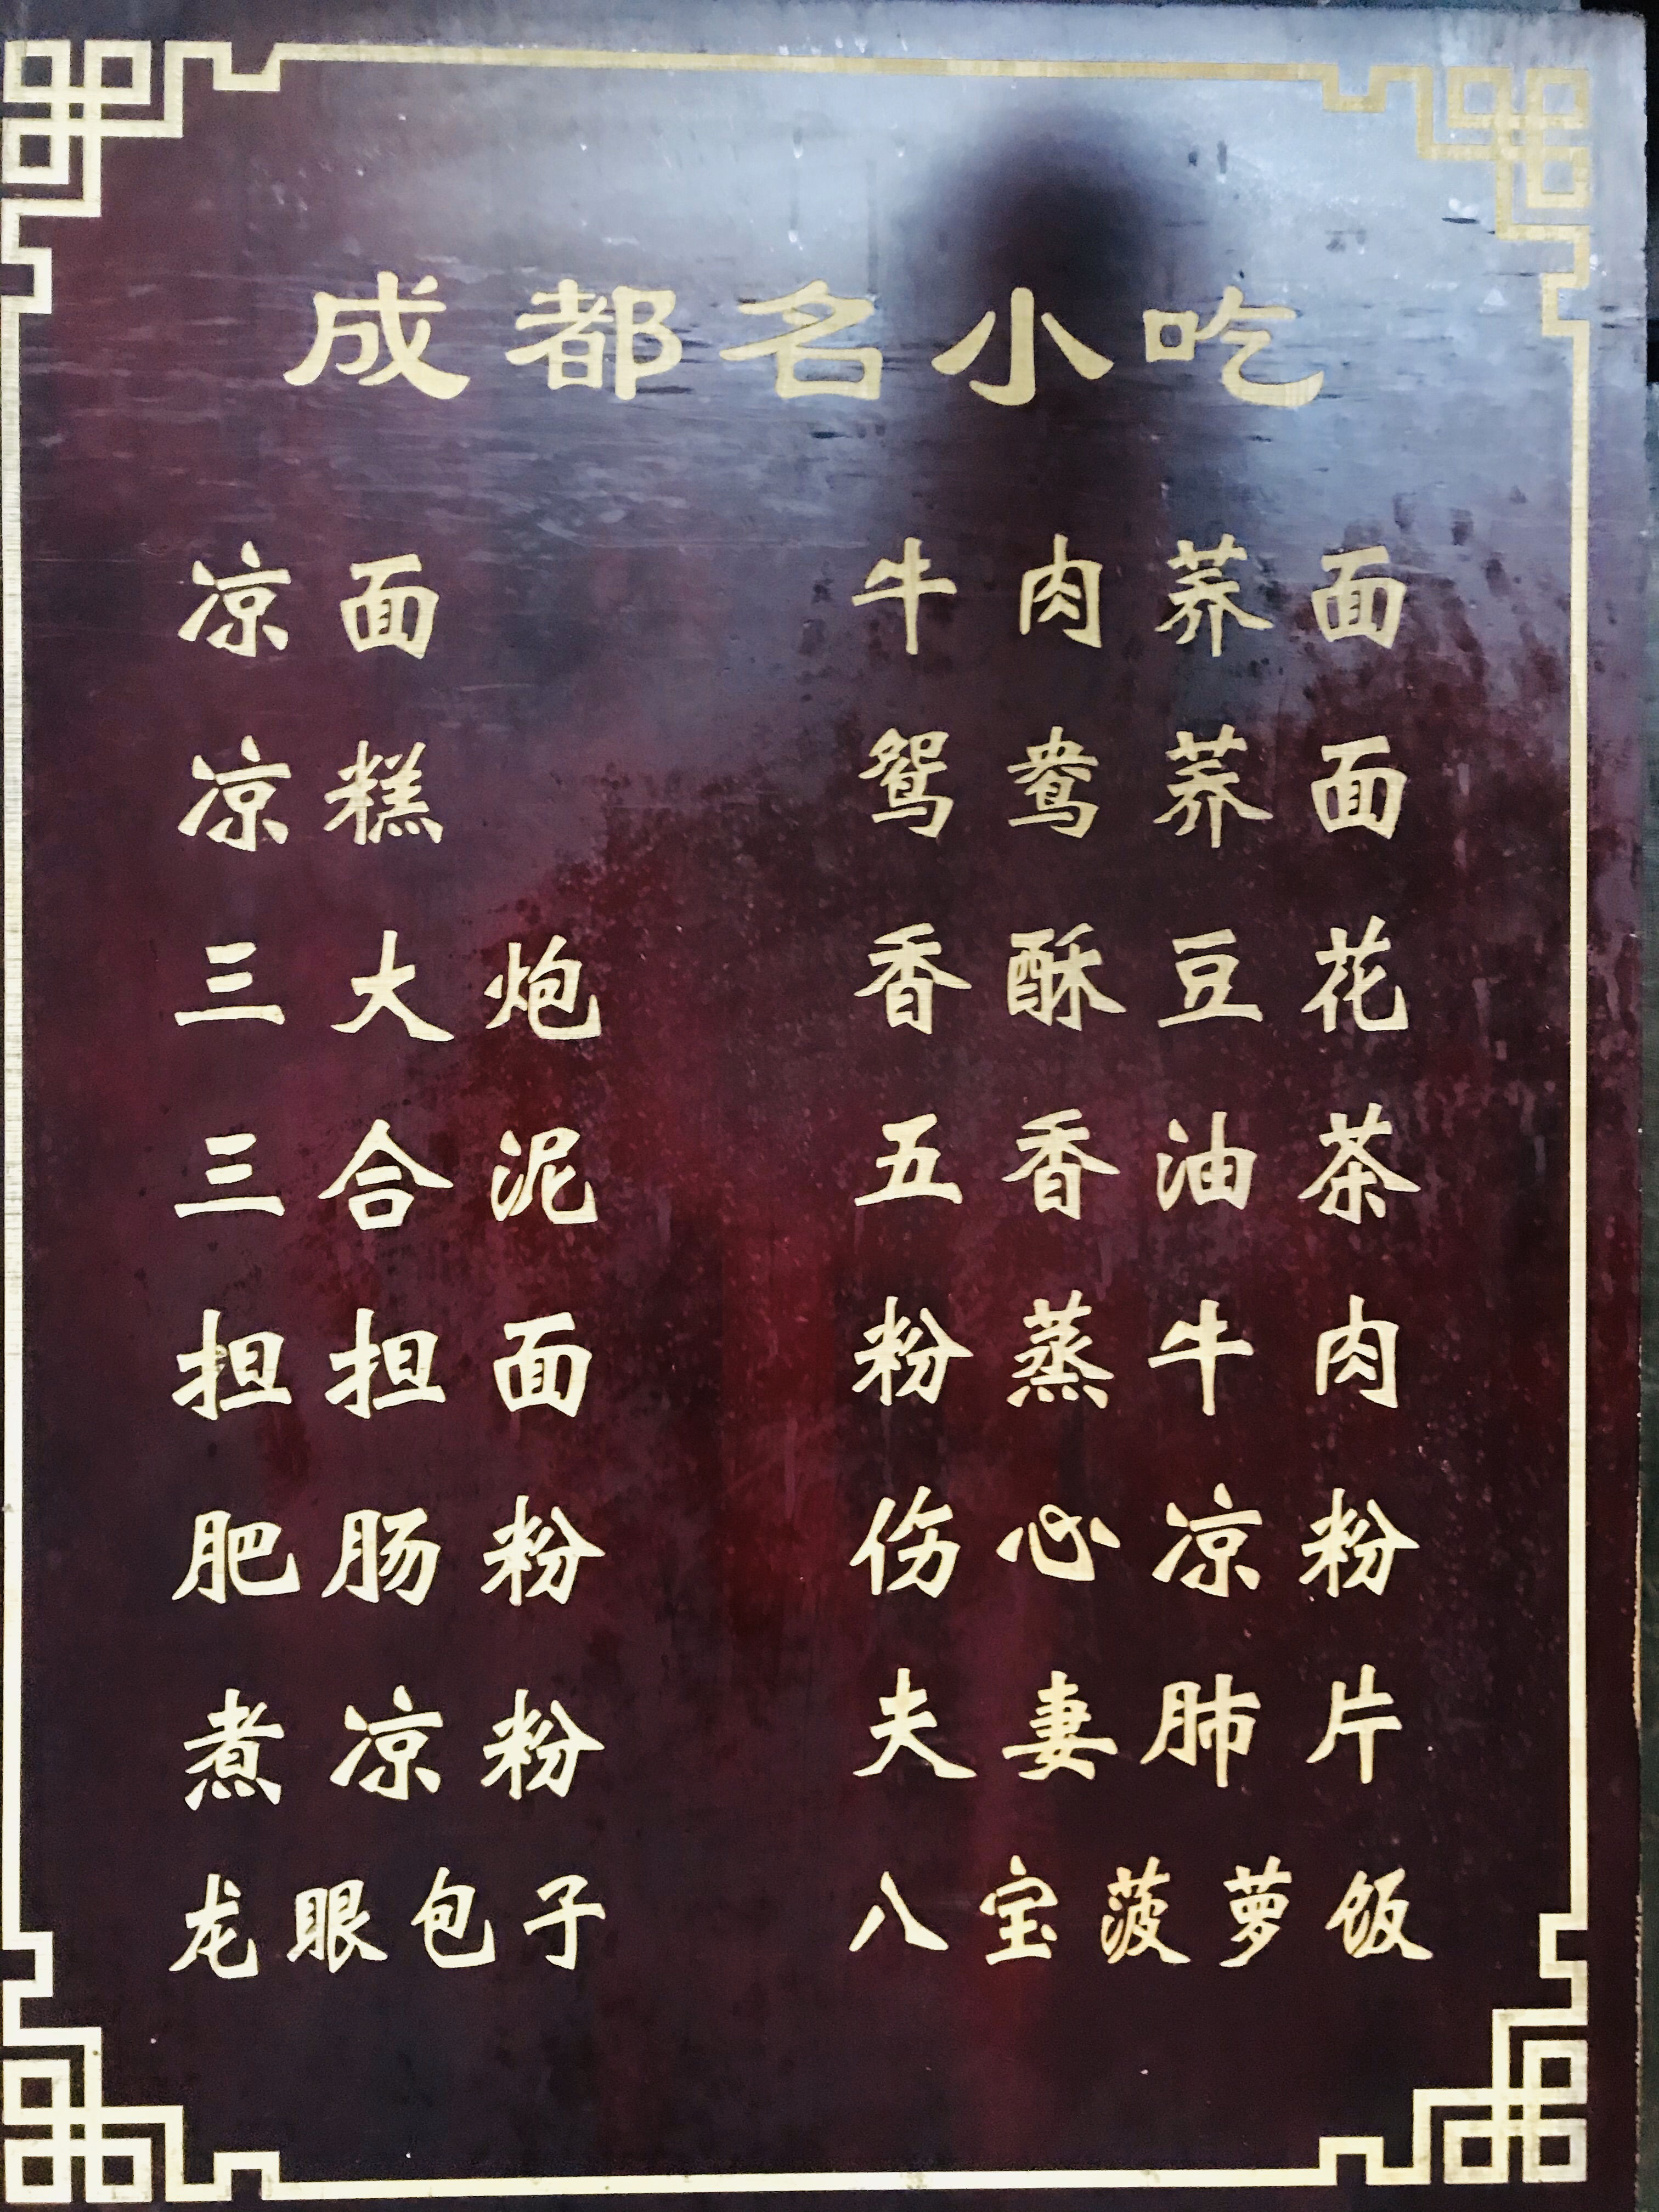 成都名小吃
凉面 牛肉荞面
凉糕 鸳鸯荞面
三大炮 香酥豆花
三合泥 五香油茶
担担面 粉蒸牛肉
肥肠粉 伤心凉粉
煮凉粉 夫妻肺片
龙眼包子 八宝菠萝饭